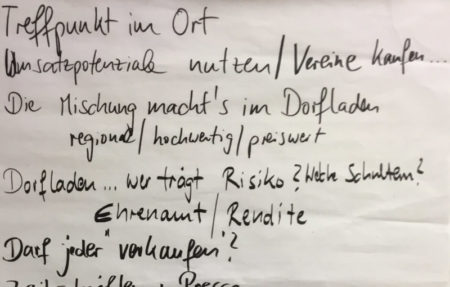 Treffpunkt im Ort
Umsatzpotenziale nutzen/Vereine kaufen...
Die Mischung macht's im Dorfladen
regional/hochwertig/preiswert
Dorfladen... wer trägt Risiko? Welche Schultern?
Ehrenamt/Rendite
Darf jeder "verkaufen"?